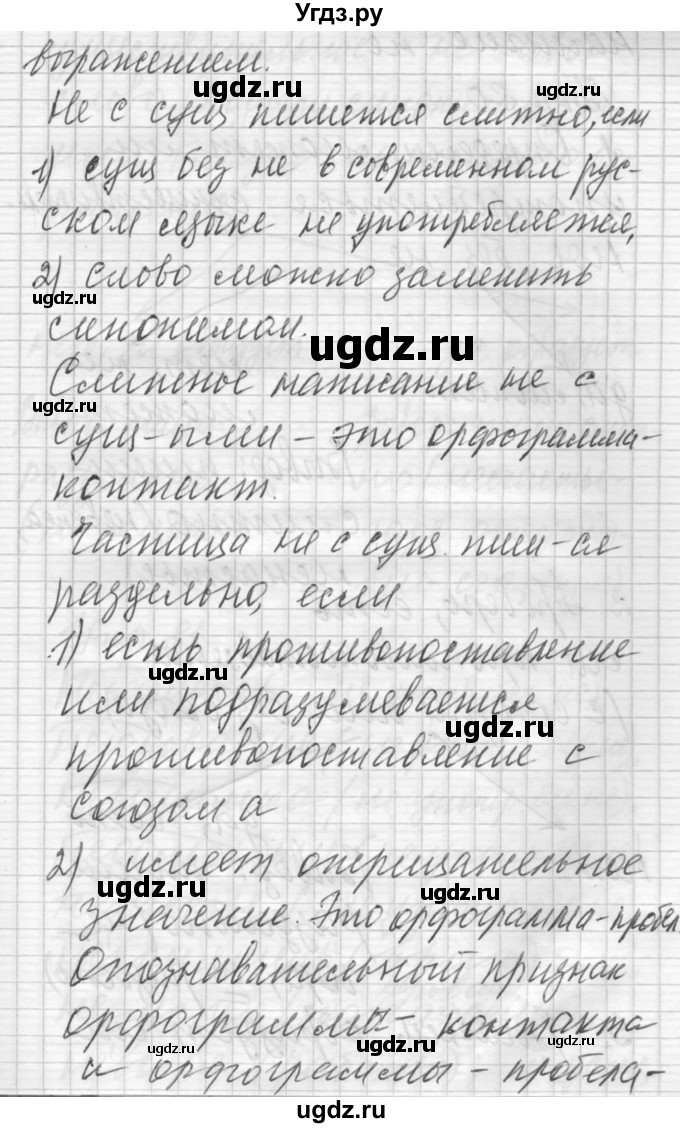 Угдз.ру
выражением.
Не с сущ пишется слитно, если
1) сущ без не в современном рус-
ском языке не употребляется,
2) слово можно заменить
ugdz.ru
синонимом.
ugdz.ru
Слитное написание не с
ugdz.ru
сущ-ыми - это орфограмма-
контакт.
Частица не с сущ. пиш-ся
раздельно, если
1) есть противопоставление
ugdz.ru
или подразумевается
ugdz.ru
противопоставление с
союзом а
2) имеет отрицательное
ugdz.ru
ugdz.ru
значение. Это орфограмма-пробел.
Опознавательный признак
орфограммы - контакта
ugdz.ru
ugdz.ru
и орфограммы - пробела-
ugdz.ru